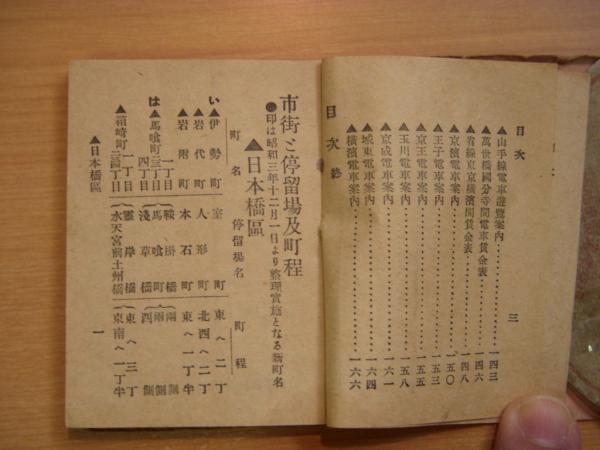 目次
三
▲山手線電車遊覽案內 一四三
▲萬世橋國分寺間電車賃金表 一四六
▲省線東京橫濱間賃金表 一四八
▲京濱電車案內 一五〇
▲王子電車案內 一五三
▲京王電車案內 一五五
▲玉川電車案內 一五八
▲京成電車案內 一六一
▲城東電車案內 一六四
▲橫濱電車案內 一六六
目次終
市街と停留場及町程
●印は昭和三年十二月一日より整理實施となる新町名
▲日本橋區
町名 停留場名 町程
い▲伊勢町 室町 東へ二丁
▲岩代町 人形町 北西へ二丁
▲岩附町 本石町 東へ一丁半
は▲馬喰町 一丁目 二三丁目 四丁目 鞍掛橋 馬喰町 淺草橋 兩側 兩側 西側
▲箱崎町 一丁目 二三四丁目 靈岸橋 水天宮前土州橋 東へ三丁 東南へ一丁半
▲日本橋區
一